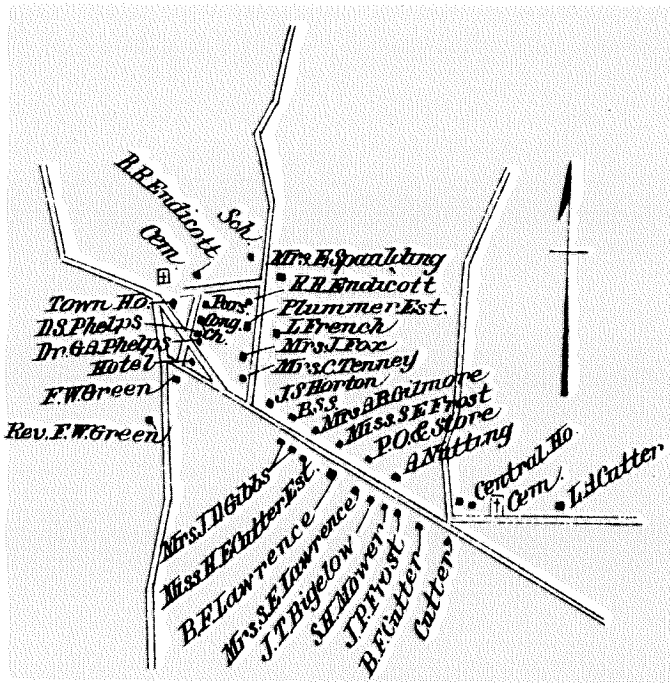 R.R. Endicott
Sch.
Cem.
Mrs. E. Spaulding
R.R. Endicott
Town Ho.
Pars.
Plummer Est.
D.S. Phelps
Cong. Ch.
L. French
Dr. G.A. Phelps
Mrs. J. Fox
Hotel
Mrs. C. Tenney
F.W. Green
J.S. Horton
B.S.S
Mrs. A.B. Gilmore
Rev. F.W. Green
Miss. S.E. Frost
P.O. & Store
A. Nutting
Central Ho.
Cem.
L.A. Cutter
Mrs. J.D. Gibbs
Miss H.E. Cutter Est.
B.F. Lawrence
Mrs. S.E. Lawrence
J.T. Bigelow
S.H. Mower
J.P. Frost
B.F. Cutter
Cutter